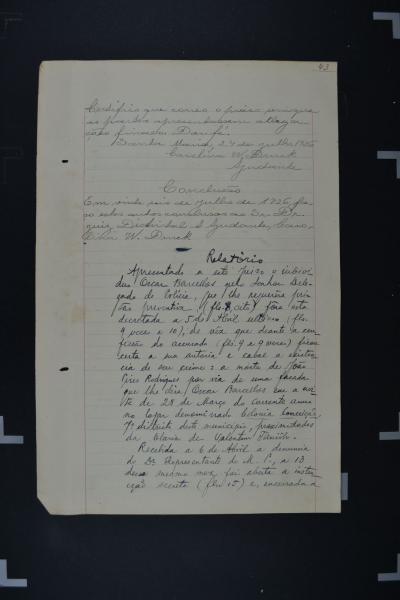 43
Certifico que correu o prazo sem que
as partes apresentassem allega
ções finaes. Dou fé.
Santa Maria, 24 de julho 1926
Carolina W. Druck
Ajudante
Conclusão
Em vinte seis de Julho de 1926, fa-
ço estes autos conclusos ao Dr.
Juiz Districtal. A Ajudante, Caro-
lina W. Druck
Relatório
Apresentado a este juizo o indicia
do Oscar Barcellos pelo Senhor Dele-
gado de Policia, que lhe requereu pri-
são preventiva (fls. 8, oito) fôra esta
decretada a 5 de Abril ultimo (fls.
9 verso e 10), de vez que deante a con-
fissão do accusado (fls. 4 a 9 verso) ficou
certa a sua autoria e cabal a existen
cia de seu crime: a morte de João
Pires Rodrigues por via de uma facada
que lhe dera Oscar Barcellos em a noi
te de 28 de Março do corrente anno
no logar denominado Colonia Conceição,
7º districto deste municipio, proximidades
da olaria de Valentim
Recebida a 6 de Abril a denuncia
do Dr. Representante do M. P., a 13
desse mesmo mez foi aberta a instru
cção secreta (fls 15) e, encerrada a